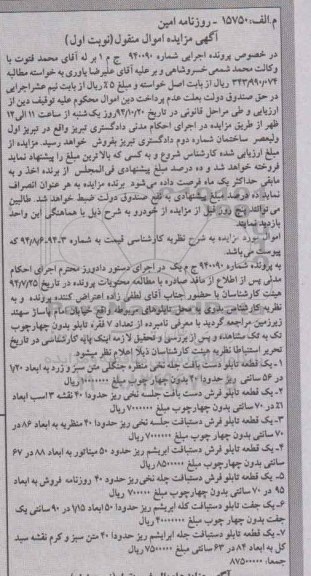 م.الف: ۱۵۷۵۰ - روزنامه امین
آگهی مزایده اموال منقول(نوبت اول)
در خصوص پرونده اجرایی شماره ۹۴۰۰۹۰ ج م ۱ بر له آقای محمد فتوت با
وکالت محمد شمعی خسروشاهی و بر علیه آقای علیرضا یاوری به خواسته مطالبه
۳۴۳/۹۹۰/۰۷۴ ریال از بابت اصل خواسته و مبلغ ۵٪ ریال از بابت نیم عشراجرایی
در حق صندوق دولت بعلت عدم پرداخت دین اموال محکوم علیه توقیف دین از
ارزیابی و طی مراحل قانونی در تاریخ ۹۴/۱۰/۲۰ روز یک شنبه از ساعت ۱۱ الی ۱۲
ظهر از طریق مزایده در اجرای احکام مدنی دادگستری تبریز واقع در تبریز اول
ولیعصر ساختمان شماره دوم دادگستری تبریز بفروش خواهد رسید. مزایده از
مبلغ ارزیابی شده کارشناس شروع و به کسی که بالاترین مبلغ را پیشنهاد نماید
فروخته خواهد شد و ده درصد مبلغ پیشنهادی فی المجلس از برنده اخذ و به
مابقی حداکثر یک ماه فرصت داده می شود برنده مزایده به هر عنوان انصراف
نماید ده درصد مبلغ پیشنهادی به نفع صندوق دولت ضبط خواهد شد. طالبین
می توانند پنج روز قبل از مزایده از به شرح ذیل با هماهنگی این واحد
بازدید نمایند
اموال مورد مزایده به شرح نظریه کارشناسی قیمت به شماره که
پیوست می باشد.
به پرونده شماره ۹۴۰۰۹۰ ج م یک در اجرای دستور دادورز محترم اجرای احکام
مدنی پس از اطلاع از مفاد صادره با مطالعه محتویات پرونده در تاریخ ۹۴/۷/۲۵
هیئت کارشناسان با حضور جناب آقای لطفی زاده اعتراض کننده پرونده و به
نظریه کارشناس بدوی به محل تابلوهای مربوطه واقع خیابان امام پاساژ سهند
زیرزمین مراجعه گردید با معرفی نامبرده از تعداد ۷ فقره تابلو بدون چهارچوب
تک به تک مشاهده و پس از بررسی و تحقیق لازمه اینک پایه کارشناسی در تاریخ
تحریر استنباطا نظریه هیئت کارشناسان ذیلا اعلام نظر میشود
۱- یک قطعه تابلو دست بافت چله نخی منظره جنگلی متن سبز و زرد به ابعاد
در ۵۶ سانتی ریز حدودا ۴۰ بدون چهار چوب مبلغ ریال
۲- یک قطعه تابلو فرش دست بافت جلسه نخی ریز حدودا ۴۰ نقشه ۳ اسب ابعاد
در ۷۰ سانتی بدون چهارچوب مبلغ ۷۰۰۰۰۰۰ ریال
۳- یک قطعه تابلو فرش دستبافت جلسه نخی ریز حدودا ۴۰ منظریه به ابعاد ۸۶ در
۷۰ سانتی بدون چهار چوب مبلغ ۷۰۰۰۰۰۰ ریال
۴- یک قطعه تابلو فرش دستبافت ابریشم ریز حدود ۵۰ مینیاتور به ابعاد ۸۸ در ۶۷
سانتی بدون چهارچوب مبلغ ۸۵۰۰۰۰۰ ریال
۵- یک قطعه تابلو فرش دستبافت چله نخی ریز حدود ۴۰ روزنامه فروش به ابعاد
۹۵ در ۷۰ سانتی بدون چهارچوب مبلغ ریال
۶- یک جفت تابلو دستبافت کله ابریشم ریز حدودا ۵۰ ابعاد در ۹۰ سانتی یک
جفت بدون چهارچوب مبلغ ریال
۷- یک قطعه تابلو فرش دستبافت چله ابرایشم ریز حدودا ۴۰ متن سبز و کرم نقشه سبد
کل به ابعاد ۸۴ در ۶۳ سانتی مبلغ ۷۵۰۰۰۰۰ ریال
جمعا: ۸۷۵۰۰۰۰۰